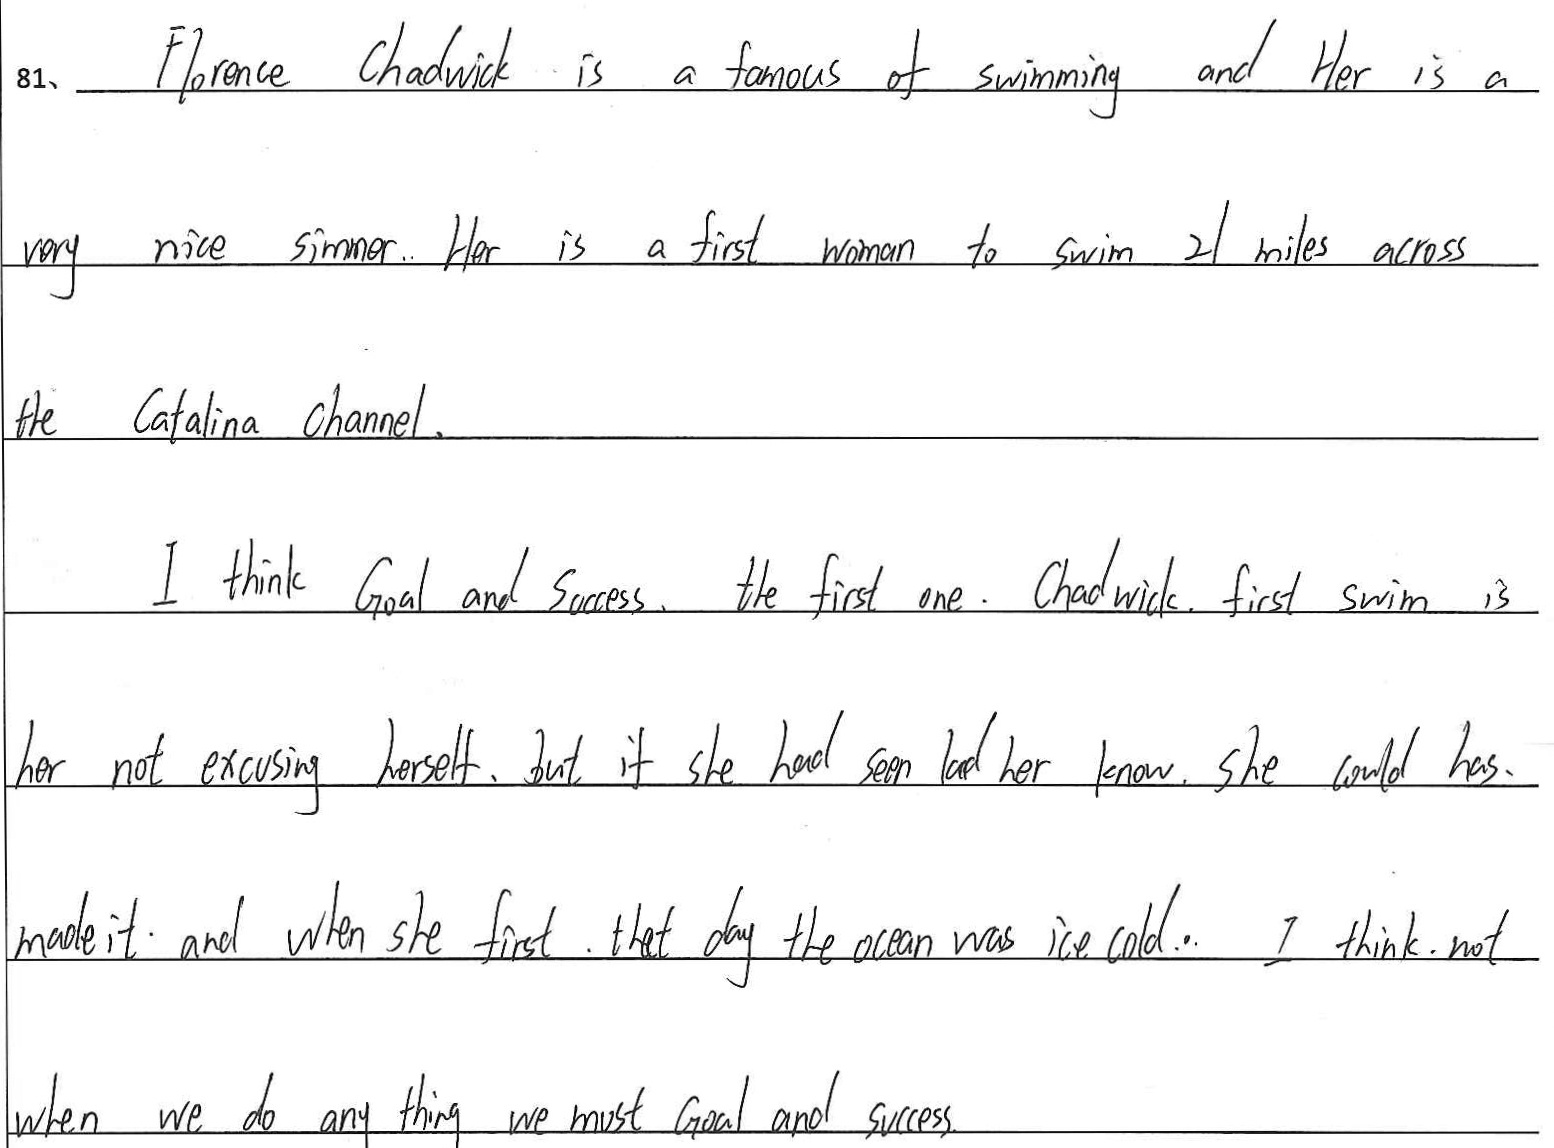 81、 Florence Chadwick is a famous of swimming and Her is a
very nice simmer.. Her is a first woman to swim 21 miles across
the Catalina Channel.
I think Goal and Success. the first one. Chadwick. first swim is
her not excusing herself. but if she had seen lad her know. she could has.
made it. and when she first. that day the ocean was ice cold.. I think. not
when we do any thing we must Goal and success.